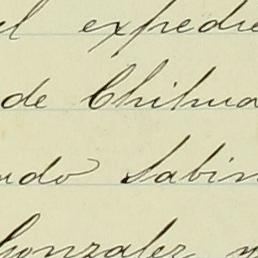 el expedie
de Chihua
ndo Sabin
Gonzalez